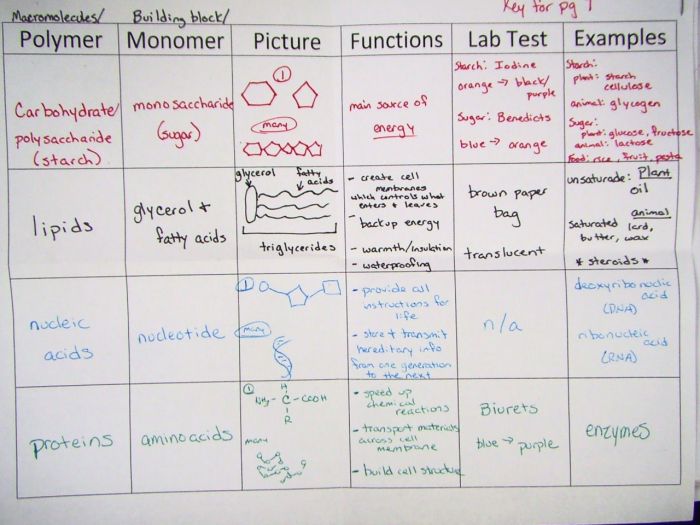 Key for pg 1
Macromolecules/ Building block/
Polymer Monomer Picture Functions Lab Test Examples
Carbohydrate/
polysaccharide
(starch)
monosaccharide
(sugar)
1
many
main source of
energy
Starch: Iodine
orange → black/
purple
Sugar: Benedicts
blue → orange
Starch:
plant: starch
cellulose
animal: glycogen
Sugar:
plant: glucose, fructose
animal: lactose
Food: rice, fruit, pasta
lipids
glycerol +
fatty acids
glycerol fatty
acids
triglycerides
- create cell
membranes
which controls what
enters + leaves
- backup energy
- warmth/insulation
- waterproofing
brown paper
bag
translucent
unsaturade: Plant
oil
animal
saturated lard,
butter, wax
* steroids *
nucleic
acids
nucleotide
1
many
- provide all
instructions for
life
- store + transmit
hereditary info
from one generation
to the next
n/a
deoxyribonuclic
acid
(DNA)
ribonucleic
acid
(RNA)
proteins
amino acids
1
H
NH₂ - C - COOH
R
many
- speed up
chemical
reactions
- transport materials
across cell
membrane
- build cell structure
Biurets
blue → purple
enzymes